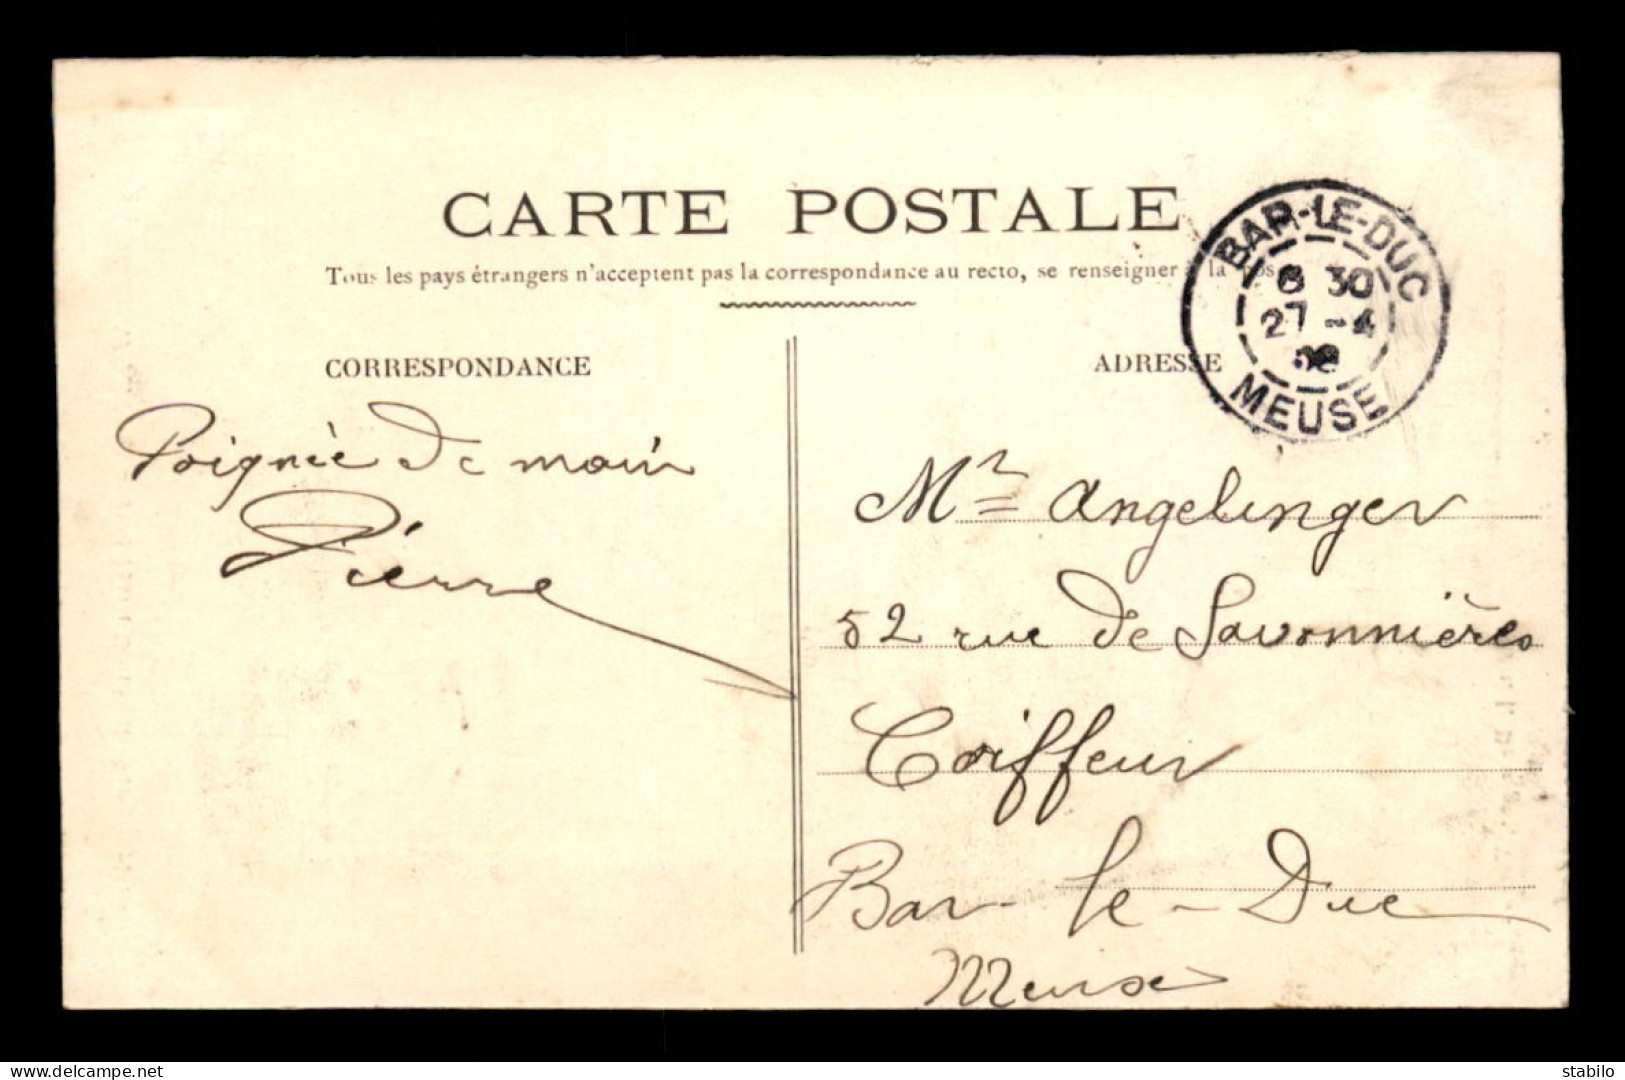 CARTE POSTALE
Tous les pays étrangers n'acceptent pas la correspondance au recto, se renseigner à la
CORRESPONDANCE
ADRESSE
BAR-LE-DUC
8 30
27 -4
MEUSE
Poignée de main
Pierre
Mr Angelinger
52 rue de Savonnières
Coiffeur
Bar-le-Duc
Meuse
delcampe.net
stabilo